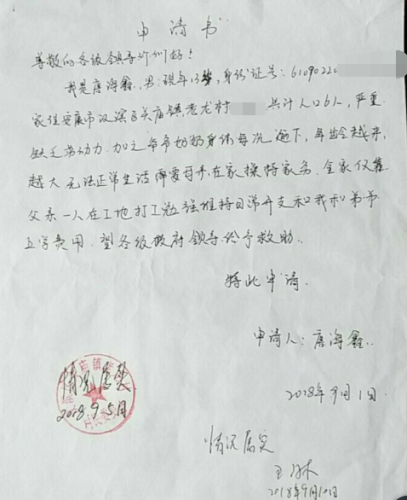 申请书
尊敬的各级领导你们好！
我是唐海鑫，男，现年13岁，身份证号：6109022
家住安康市汉滨区关庙镇老龙村 共计人口6人，严重
缺乏劳动力，加之爷爷奶奶身体每况逾下，年龄越来
越大无法正常生活需要母亲在家操持家务，全家仅靠
父亲一人在工地打工勉强维持日常开支和我和弟弟
上学费用。望各级政府领导给予救助。
特此申请
申请人：唐海鑫
2018年9月1日
情况属实
2018.9.5日
情况属实
2018年9月10日